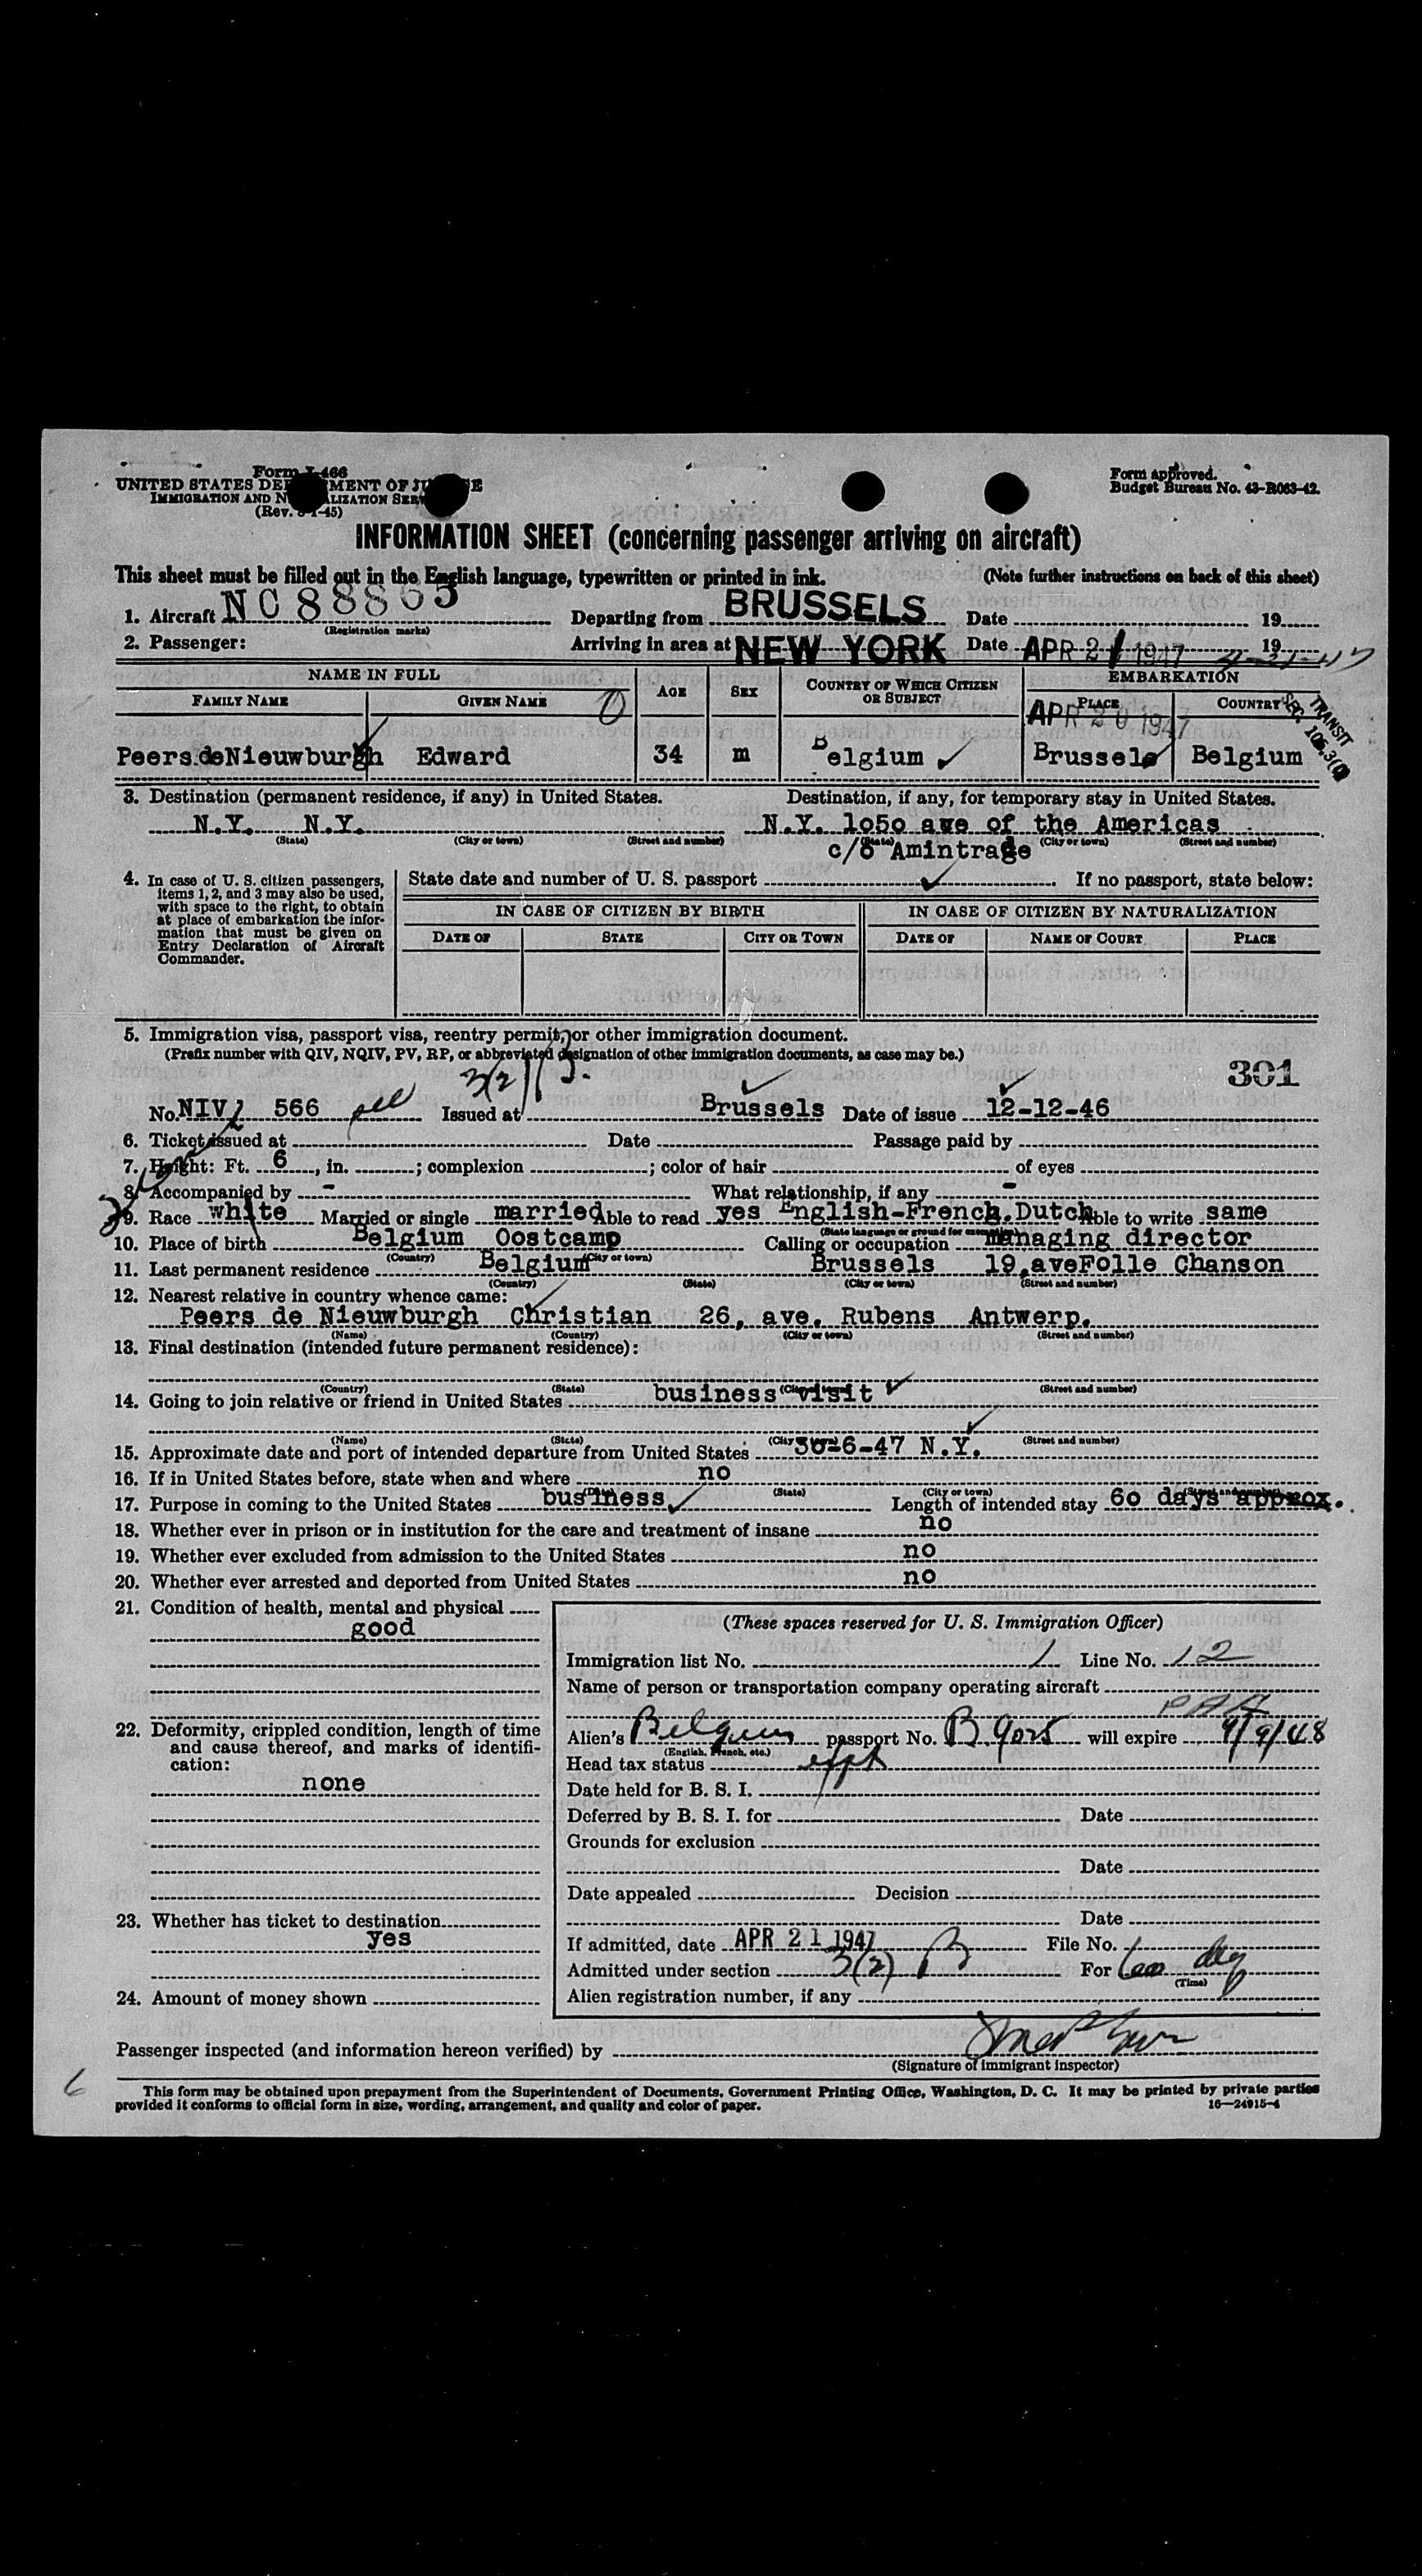 Form I-466
UNITED STATES DEPARTMENT OF JUSTICE
IMMIGRATION AND NATURALIZATION SERVICE
(Rev. 8-1-45)
Form approved.
Budget Bureau No. 43-R063-42.
INFORMATION SHEET (concerning passenger arriving on aircraft)
This sheet must be filled out in the English language, typewritten or printed in ink. (Note further instructions on back of this sheet)
1. Aircraft NC88865 Departing from BRUSSELS Date 19
(Registration marks)
2. Passenger: Arriving in area at NEW YORK Date APR 21 1947 19 4-21-47
NAME IN FULL AGE SEX COUNTRY OF WHICH CITIZEN OR SUBJECT EMBARKATION
FAMILY NAME GIVEN NAME PLACE COUNTRY
APR 20 1947
TRANSIT
SEC. 105.3(
Peers deNieuwburgh Edward 34 m Belgium Brussels Belgium
3. Destination (permanent residence, if any) in United States. Destination, if any, for temporary stay in United States.
N.Y. N.Y. N.Y. 1o5o ave of the Americas
(State) (City or town) (Street and number) (State) (City or town) (Street and number)
c/o Amintrade
4. In case of U. S. citizen passengers, items 1, 2, and 3 may also be used, with space to the right, to obtain at place of embarkation the information that must be given on Entry Declaration of Aircraft Commander.
State date and number of U. S. passport If no passport, state below:
IN CASE OF CITIZEN BY BIRTH IN CASE OF CITIZEN BY NATURALIZATION
DATE OF STATE CITY OR TOWN DATE OF NAME OF COURT PLACE
5. Immigration visa, passport visa, reentry permit, or other immigration document.
(Prefix number with QIV, NQIV, PV, RP, or abbreviated designation of other immigration documents, as case may be.)
3(2) 301
No. NIV 566 Issued at Brussels Date of issue 12-12-46
6. Ticket issued at Date Passage paid by
7. Height: Ft. 6, in. ; complexion ; color of hair of eyes
8. Accompanied by - What relationship, if any -
9. Race white Married or single married Able to read yes English-French.Dutch Able to write same
(State language or ground for exemption)
10. Place of birth Belgium Oostcamp Calling or occupation managing director
(Country) (City or town)
11. Last permanent residence Belgium Brussels 19,aveFolle Chanson
(Country) (State) (City or town) (Street and number)
12. Nearest relative in country whence came:
Peers de Nieuwburgh Christian 26, ave. Rubens Antwerp.
(Name) (Country) (City or town) (Street and number)
13. Final destination (intended future permanent residence):
(Country) (State) (City or town) (Street and number)
14. Going to join relative or friend in United States business visit
(Name) (State) (City or town) (Street and number)
15. Approximate date and port of intended departure from United States 30-6-47 N.Y.
16. If in United States before, state when and where no
(Date) (State) (City or town) (Street and number)
17. Purpose in coming to the United States business Length of intended stay 6o days approx.
18. Whether ever in prison or in institution for the care and treatment of insane no
19. Whether ever excluded from admission to the United States no
20. Whether ever arrested and deported from United States no
21. Condition of health, mental and physical
good
22. Deformity, crippled condition, length of time and cause thereof, and marks of identification:
none
23. Whether has ticket to destination
yes
24. Amount of money shown
(These spaces reserved for U. S. Immigration Officer)
Immigration list No. 1 Line No. 12
Name of person or transportation company operating aircraft
PAA
Alien's Belgium passport No. B.9025 will expire 9/9/48
(English, French, etc.)
Head tax status
Date held for B. S. I.
Deferred by B. S. I. for Date
Grounds for exclusion
Date
Date appealed Decision
Date
If admitted, date APR 21 1947 File No.
Admitted under section 3(2) B For 60 days
(Time)
Alien registration number, if any
Passenger inspected (and information hereon verified) by
(Signature of immigrant inspector)
6
This form may be obtained upon prepayment from the Superintendent of Documents, Government Printing Office, Washington, D. C. It may be printed by private parties
provided it conforms to official form in size, wording, arrangement, and quality and color of paper. 16—24915-4